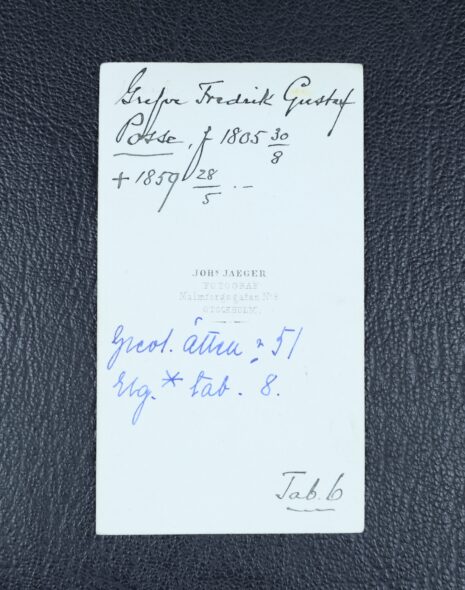 Grefve Fredrik Gustaf
Posse, f 1805 30/8
+ 1859 28/5 --
JOHS JAEGER
FOTOGRAF
Malmtorgsgatan No 8
STOCKHOLM.
Grevl. ätten n 51
Elg.* tab. 8.
Tab. 6